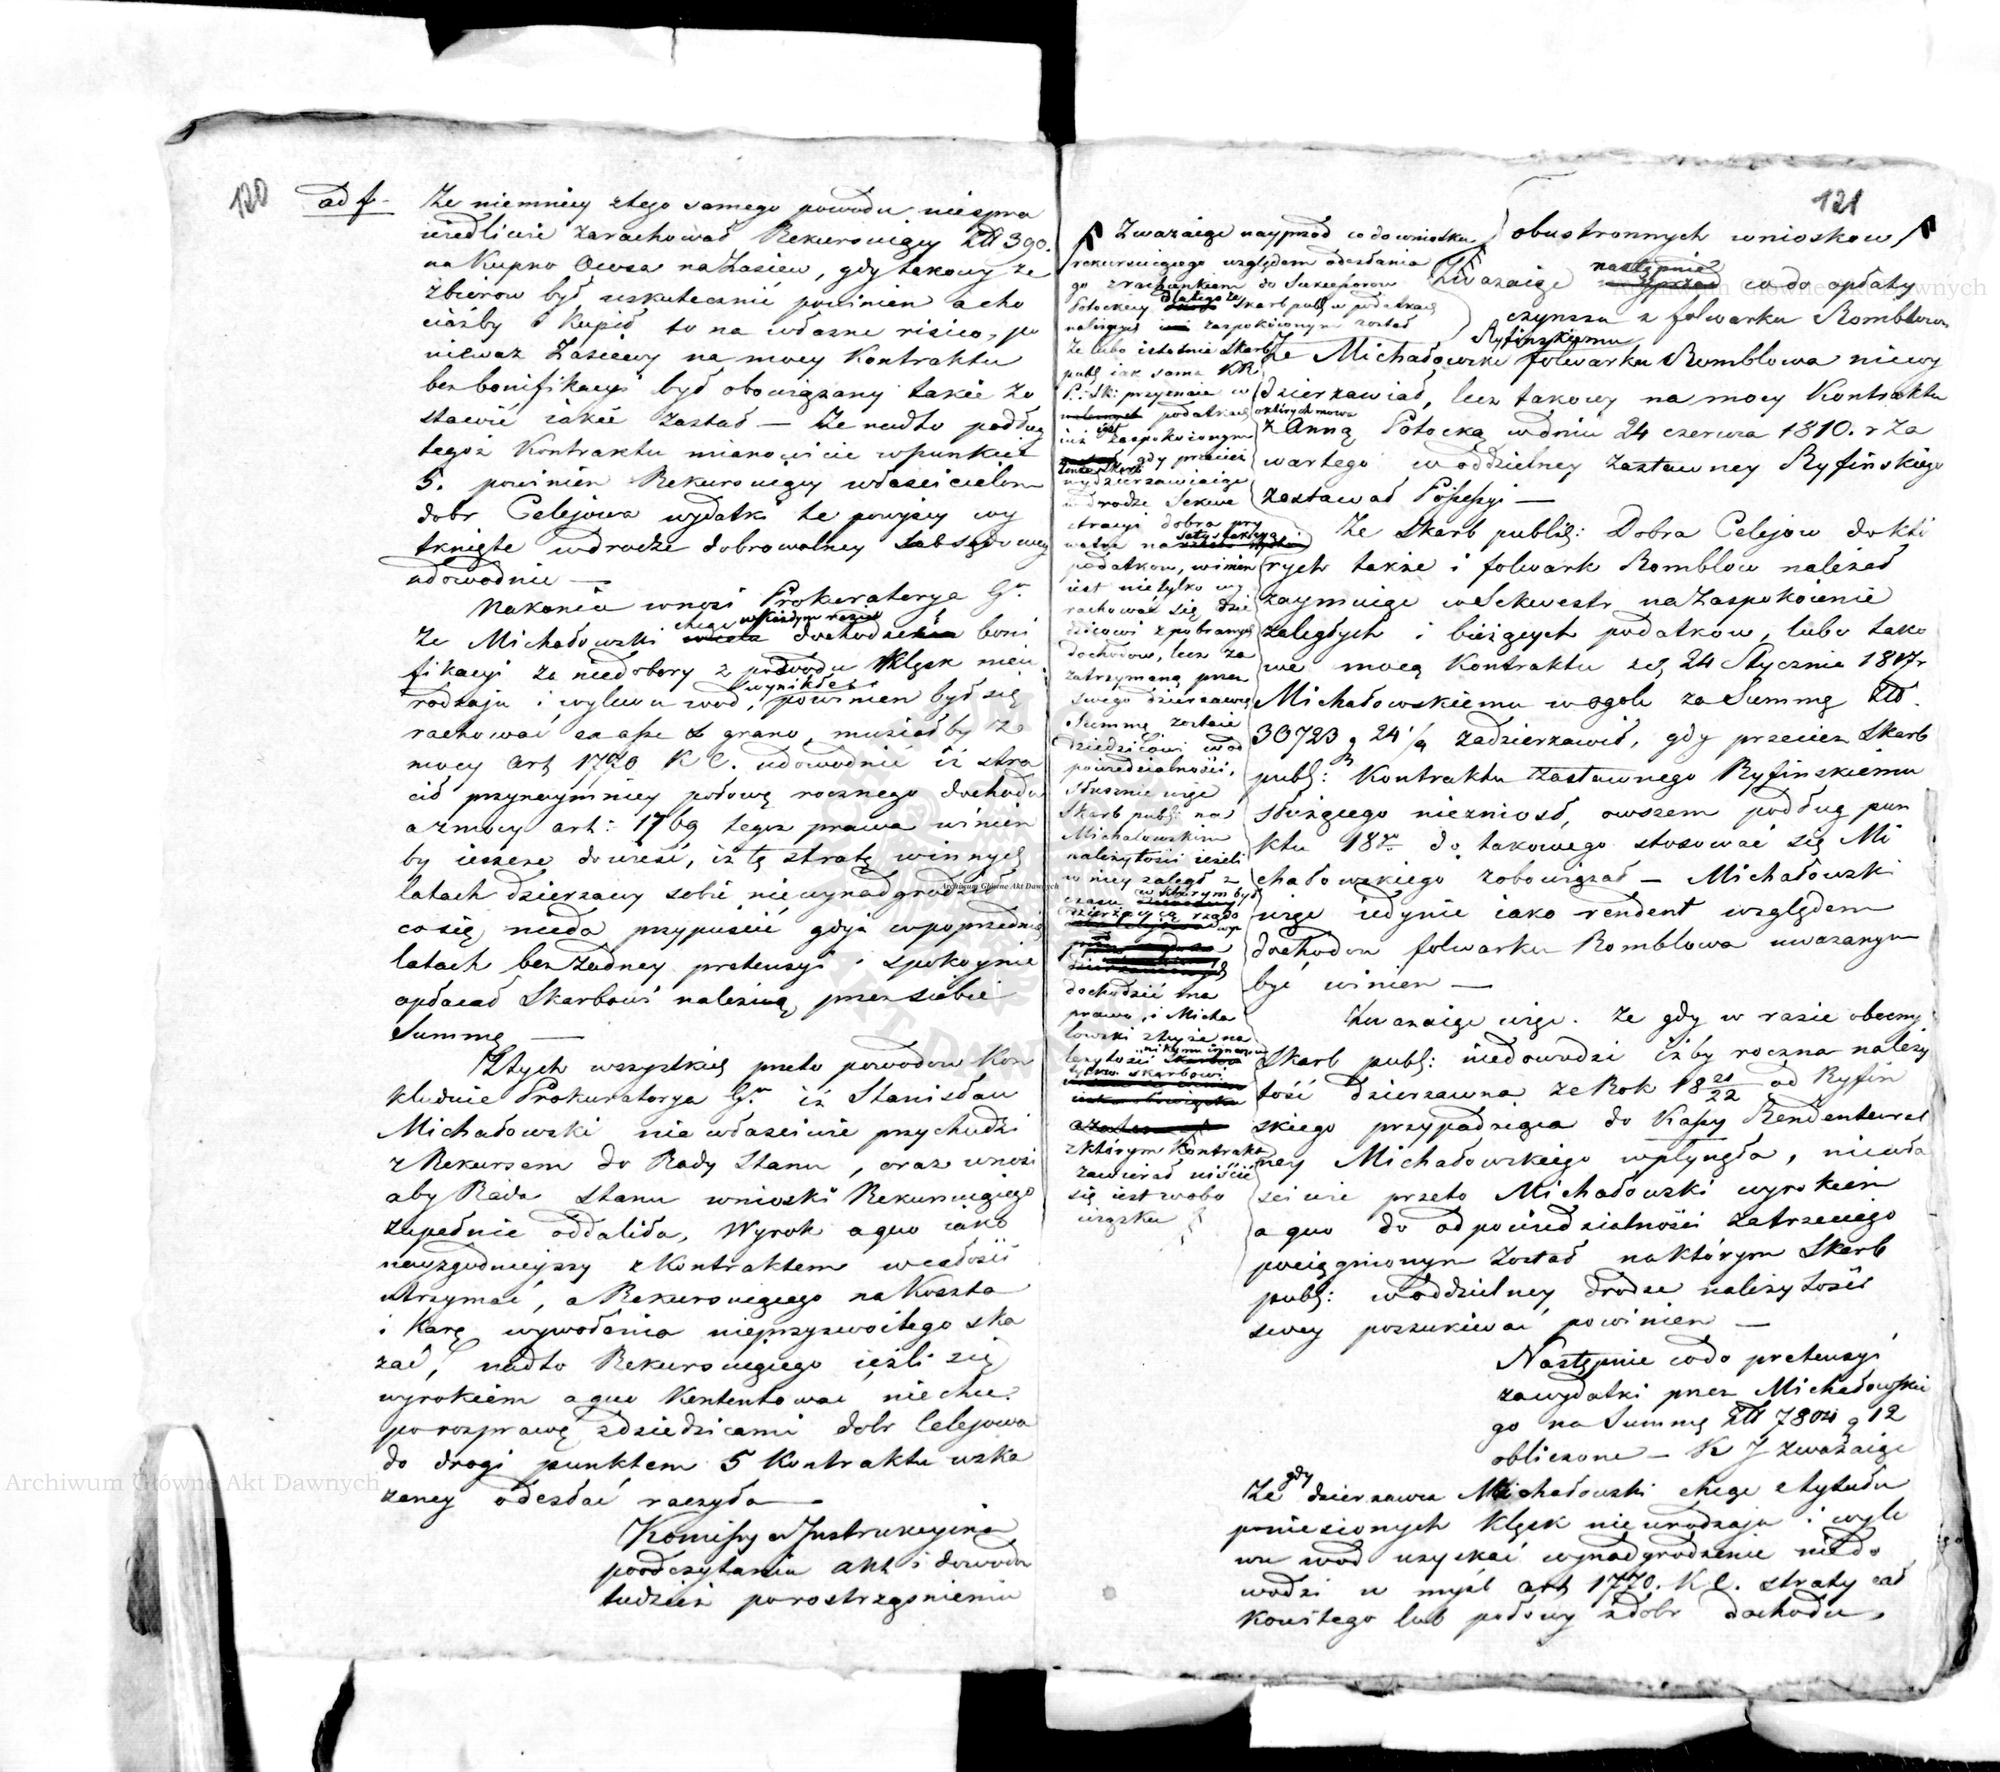 120
ad f.
Że niemniey z tego samego powodu niespra
wiedliwie zarachował Rekuruiący Złł 390.
na Kupno Owsa na Zasiew, gdy takowy ze
zbiorow był uskutecznić powinien a cho
ciażby i Kupił to na własne risico, po
niewaz Zasiewy na mocy Kontraktu
bez bonifikacyi był obowiązany takie zo
stawić iakie zastał — Że nadto podług
tegoż Kontraktu mianowicie w punkcie
5. powinien Rekuruiący właścicielom
dobr Celejowa wydatki te powyżey wy
tknięte w drodze dobrowolney lub sądowey
udowodnić —
Nakoniec wnosi Prokuratorya Gn.
że Michałowski chcąc w każdym razie dochodzić boni
fikacyi za niedobory z powodu klęsk nieu
rodzaju i wylewu wod, wynikłe powinien był się
rachować ex asse et grano, musiałby z
mocy art 1770 K C. udowodnić iż stra
cił przynaymniey połowę rocznego dochodu
a z mocy art: 1769 tegoż prawa winien
by ieszcze dowieść, iż tę stratę w innych
latach dzierzawy sobie niewynadgrodził
co się nieda przypuścić gdyż w poprzednich
latach bez żadney pretensyi i spokoynie
opłacał Skarbowi należną przez siebie
Summę —
Z tych wszystkich przeto powodow Kon
kluduie Prokuratorya Gn. iż Stanisław
Michałowski niewłaściwie przychodzi
z Rekursem do Rady Stanu, oraz wnosi
aby Rada Stanu wnioski Rekuruiącego
zupełnie oddaliła, Wyrok a quo iako
nayzgodnieyszy z Kontraktem w całości
utrzymać, a Rekuruiącego na Koszta
i Karę wywołania nieprzyzwoitego ska
zać, nadto Rekuruiącego ieżli się
wyrokiem a quo Kontentować niechce
po rozprawę z dziedzicami dobr Celejowa
do drogi punktem 5 Kontraktu wska
zaney odesłać raczyła —
Komissya Instrukcyina
po odczytaniu akt i dowodow
tudzież po rostrzągnieniu
121
Zważaiąc nayprzod co do wniosku
rekuruiącego względem odesłania
go z rachunkiem do Sukcessorow
Potockiey dlatego że Skarb publ w podatkach
należnych iuż zaspokoionym został
Że lubo istotnie Skarb
publ iak sama KR
P. i Sk: przyznaie w
podatkach o których mowa
iuż iest zaspokoionym
gdy przecież
wydzierzawiaiąc
w drodze Sekwe
stracyi dobra pry
watne na satysfakcyą
podatkow, winien
iest nietylko wy
rachować się dzie
dzicowi z pobranych
dochodow, lecz za
zatrzymaną przez
swego dzierzawcę
Summę zostaie
dziedzicowi w od
powiedzialności,
słusznie więc
Skarb publ: na
Michałowskim
należytości ieżeli
w niey zaległ z
czasu w którym był
dzierzawcą rządo
wym
dochodzić ma
prawo, i Micha
łowski z tychże na
leżytości nikomu innemu
tylko skarbowi
z którym Kontrakt
zawierał uiścić
się iest w obo
wiązku
obustronnych wnioskow
Zważaiąc następnie co do opłaty
czynszu z folwarku Rombłowa
Ryfinskiemu
Że Michałowski folwarku Rombłowa niewy
dzierzawiał, lecz takowy na mocy Kontraktu
z Anną Potocką w dniu 24 czerwca 1810. r za
wartego w oddzielney zastawney Ryfińskiego
zostawał Possessyi —
Że Skarb publ: Dobra Celejow do któ
rych także i folwark Rombłow należał
zaymuiąc w Sekwestr na Zaspokoienie
zaległych i bieżących podatkow, lubo tako
we mocą Kontraktu z d. 24 Stycznia 1817 r
Michałowskiemu w ogole za Summę Złł.
30723 g 24 ¼ zadzierzawił, gdy przecież Skarb
publ: Kontraktu zastawnego Ryfinskiemu
służącego niezniosł, owszem podług pun
ktu 18go do takowego stosować się Mi
chałowskiego zobowiązał — Michałowski
więc iedynie iako rendent względem
dochodow folwarku Rombłowa uważanym
być winien —
Zważaiąc więc. Że gdy w razie obecnym
Skarb publ: niedowodzi iżby roczna należy
tość dzierzawna ze Rok 18 21/22 od Ryfin
skiego przypadaiąca do Kassy Rendentural
ney Michałowskiego wpłynęła, niewła
ściwie przeto Michałowski wyrokiem
a quo do odpowiedzialności za trzeciego
pociągnionym został na którym Skarb
publ: w oddzielney drodze należytości
swey poszukiwać powinien —
Następnie co do pretensyi
za wydatki przez Michałowskie
go na Summę Złł 7804 g 12
obliczone — K J zważaiąc
Że gdy dzierzawca Michałowski chcąc z tytułu
poniesionych klęsk nieurodzaju i wyle
wu wod uzyskać wynadgrodzenie niedo
wodzi w myśl art 1770. K C. straty cał
kowitego lub połowy z dobr dochodu,
Archiwum Główne Akt Dawnych
Archiwum Główne Akt Dawnych
Archiwum Główne Akt Dawnych